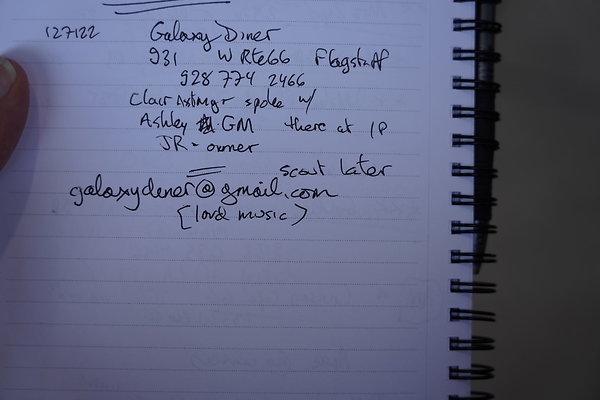 12 7 22 Galaxy Diner
931 W Rte 66 Flagstaff
928 774 2466
spoke w/
Ashley GM there at 1P
JR - owner
scout later
galaxydener@gmail.com
(loud music)